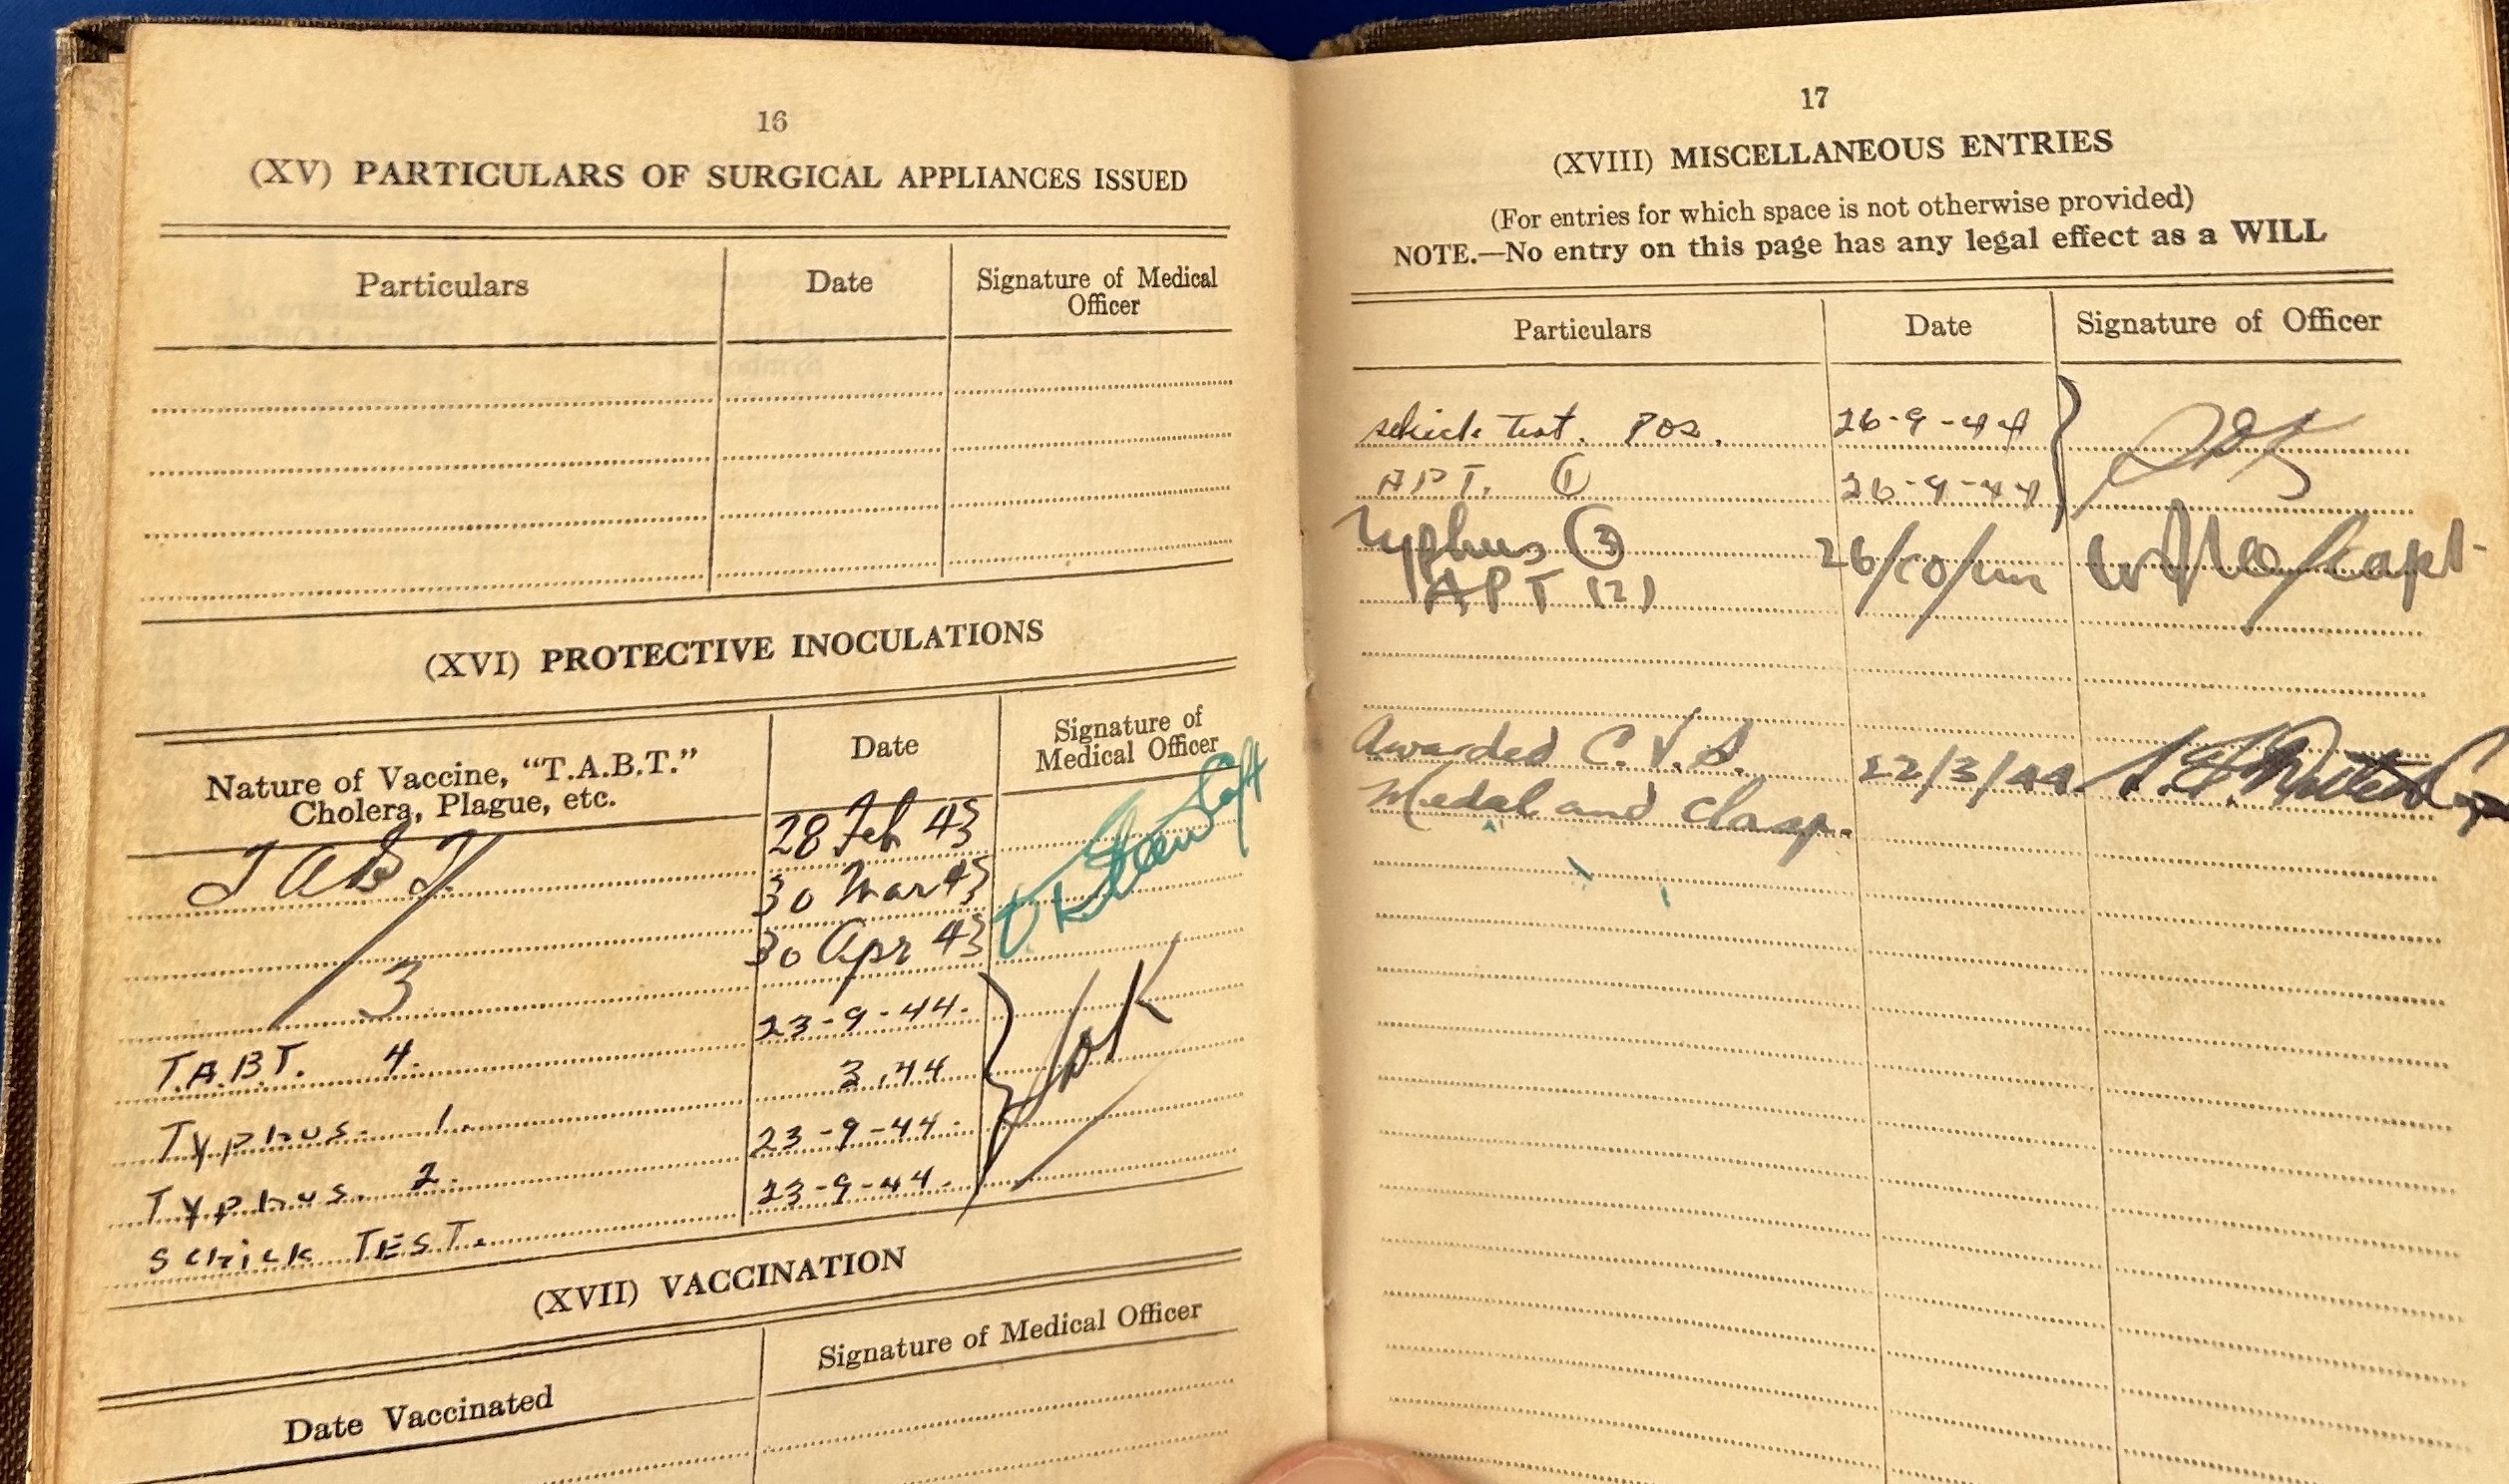 16
(XV) PARTICULARS OF SURGICAL APPLIANCES ISSUED
Particulars Date Signature of Medical Officer
(XVI) PROTECTIVE INOCULATIONS
Nature of Vaccine, "T.A.B.T." Cholera, Plague, etc. Date Signature of Medical Officer
TABT 28 Feb 43
30 Mar 43
3 30 Apr 43
T.A.B.T. 4. 23-9-44.
Typhus. 1. 3.44
Typhus. 2. 23-9-44.
SCHICK TEST. 23-9-44.
(XVII) VACCINATION
Date Vaccinated Signature of Medical Officer
17
(XVIII) MISCELLANEOUS ENTRIES
(For entries for which space is not otherwise provided)
NOTE.—No entry on this page has any legal effect as a WILL
Particulars Date Signature of Officer
Schick Test. Pos. 26-9-44
A.P.T. (1) 26-9-44
Typhus (3) 26/10/44 Capt.
APT (2)
Awarded C.V.S. 22/3/44
Medal and Clasp.